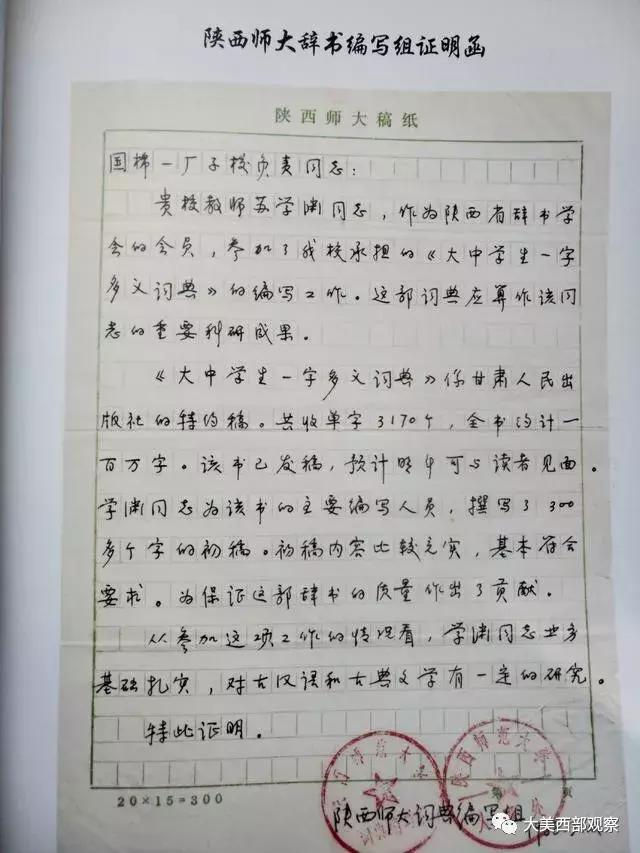 陕西师大辞书编写组证明函
陕西师大稿纸
国棉一厂子校负责同志：
贵校教师苏学渊同志，作为陕西省辞书学
会的会员，参加了我校承担的《大中学生一字
多义词典》的编写工作。这部词典应算作该同
志的重要科研成果。
《大中学生一字多义词典》系甘肃人民出
版社的特约稿。共收单字3170个，全书约计一
百万字。该书已发稿，预计明年可与读者见面。
学渊同志为该书的主要编写人员，撰写了300
多个字的初稿。初稿内容比较充实，基本符合
要求。为保证这部辞书的质量作出了贡献。
从参加这项工作的情况看，学渊同志业务
基础扎实，对古汉语和古典文学有一定的研究。
特此证明。
陕西师范大学
20×15=300
第 页
陕西师大词典编写组
大美西部观察